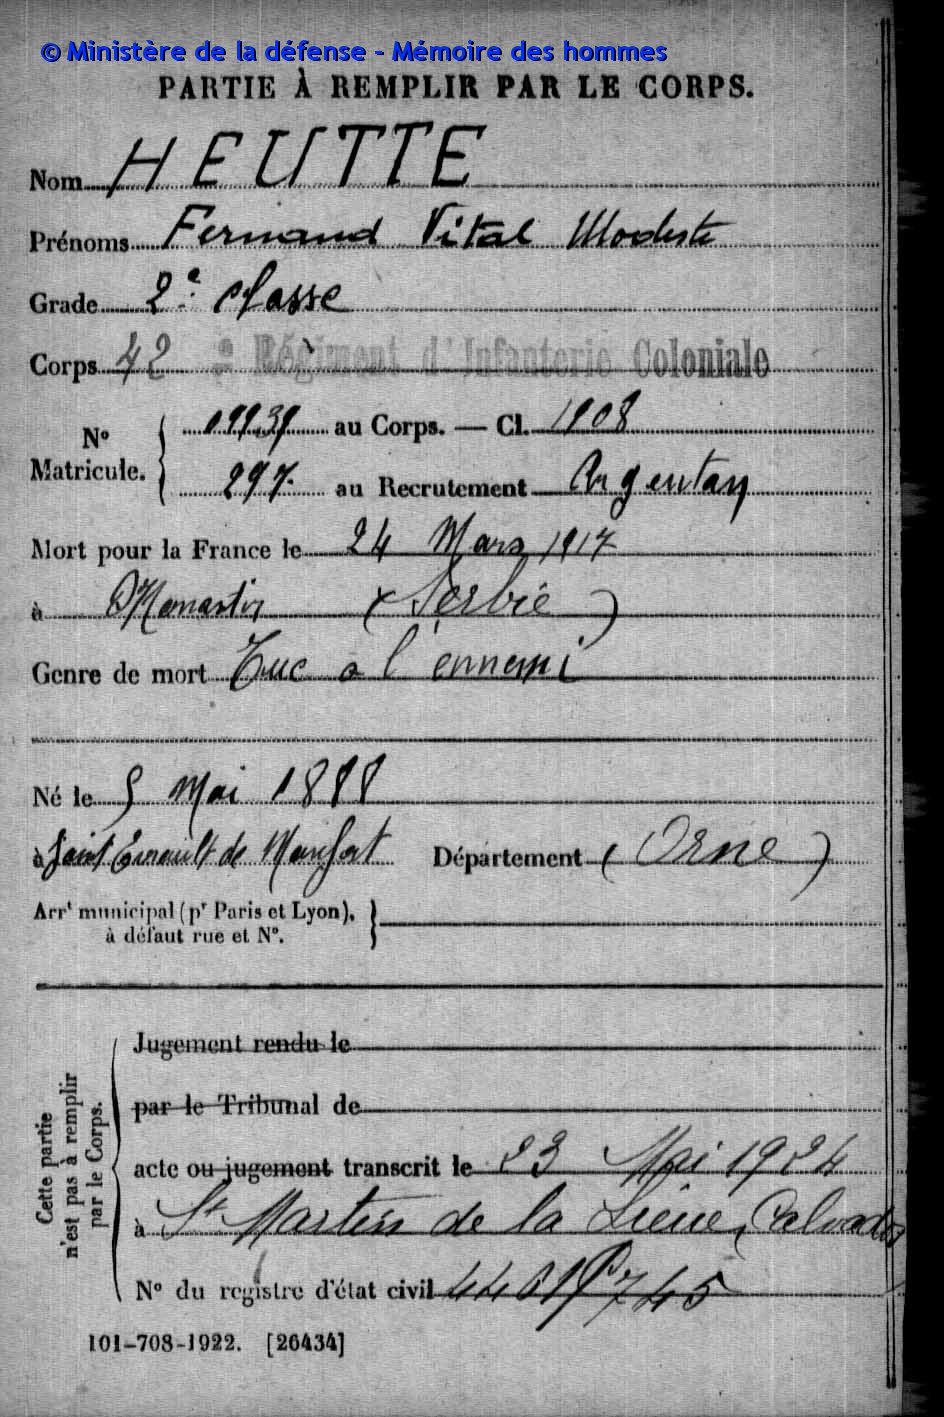 © Ministère de la défense - Mémoire des hommes
PARTIE À REMPLIR PAR LE CORPS.
Nom HEUTTE
Prénoms Fernand Vital Modeste
Grade 2e classe
Corps 42e Régiment d'Infanterie Coloniale
No Matricule. au Corps. — Cl. 1908
297. au Recrutement Argentan
Mort pour la France le 24 Mars 1917
à Monastir (Serbie)
Genre de mort Tué à l'ennemi
Né le 5 Mai 1888
à Saint de Département (Orne)
Arrt municipal (pr Paris et Lyon),
à défaut rue et No.
Cette partie
n'est pas à remplir
par le Corps.
Jugement rendu le
par le Tribunal de
acte ou jugement transcrit le 23 Mai 1924
à St Martin de la Lieue, Calvados
No du registre d'état civil 745
101-708-1922. [26434]